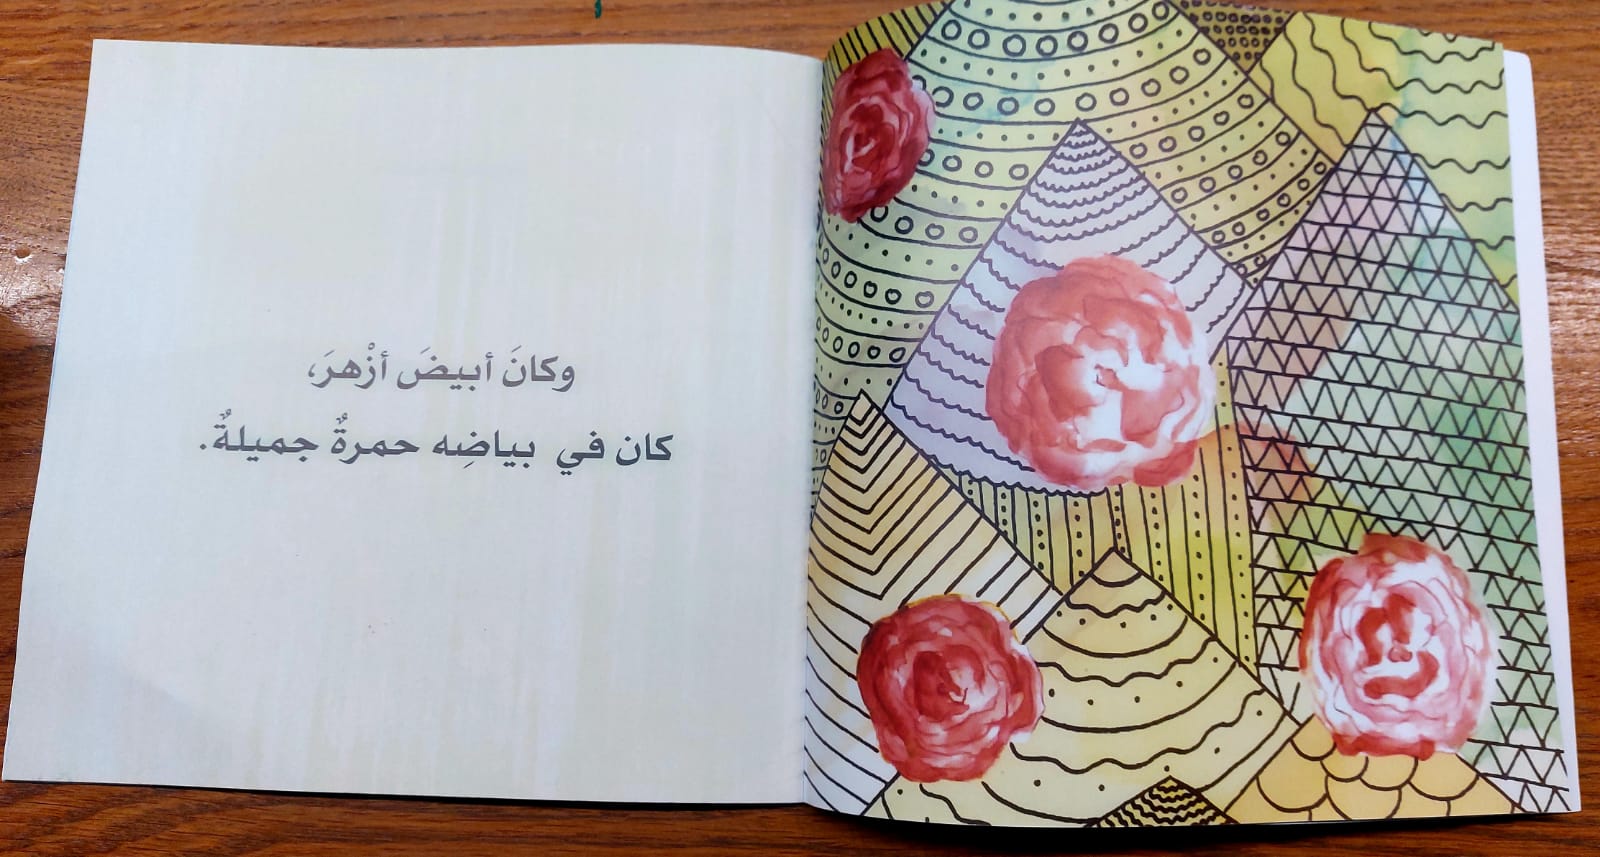 وكانَ أبيضَ أزْهرَ،
كان في بياضِه حمرةٌ جميلةٌ.